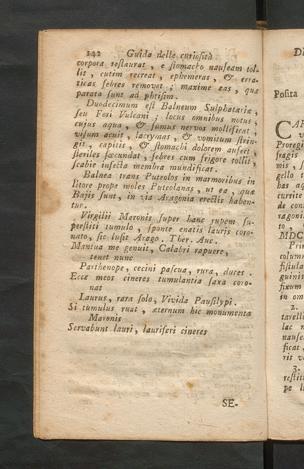 142 Guida delle curiosità
corpora restaurat, e stomacho nauseam tol-
lit, cutim recreat, ephemeras, & erra-
ticas febres removet; maxime eas, quæ
parata sunt ad phtisim.
Duodecimum est Balneum Sulphatariæ,
seu Fori Vulcani; locus omnibus notus,
cujus aqua, & fumus nervos mollificat,
visum acuit, lacrymas, & vomitum strin-
git, capitis, & stomachi dolorem aufert,
steriles fæcundat, febres cum frigore tollit,
scabie infecta membra mundificat.
Balnea trans Puteolos in marmoribus in
litore prope moles Puteolanas, ut ea, quæ
Bajis sunt, in via Aragonia erectis haben-
tur.
Virgilii Maronis super hanc rupem su-
perstiti tumulo, sponte enatis lauris coro-
nato, sic lusit Arago. Ther. Auc.
Mantua me genuit, Calabri rapuere,
tenet nunc
Parthenope, cecini pascua, rura, duces.
Ecce meos cineres tumulantia saxa coro-
nat
Laurus, rara solo, Vivida Pausilypi.
Si tumulus ruat, æternum hic monumenta
Maronis
Servabunt lauri, lauriferi cineres
SE-
DE
Posita